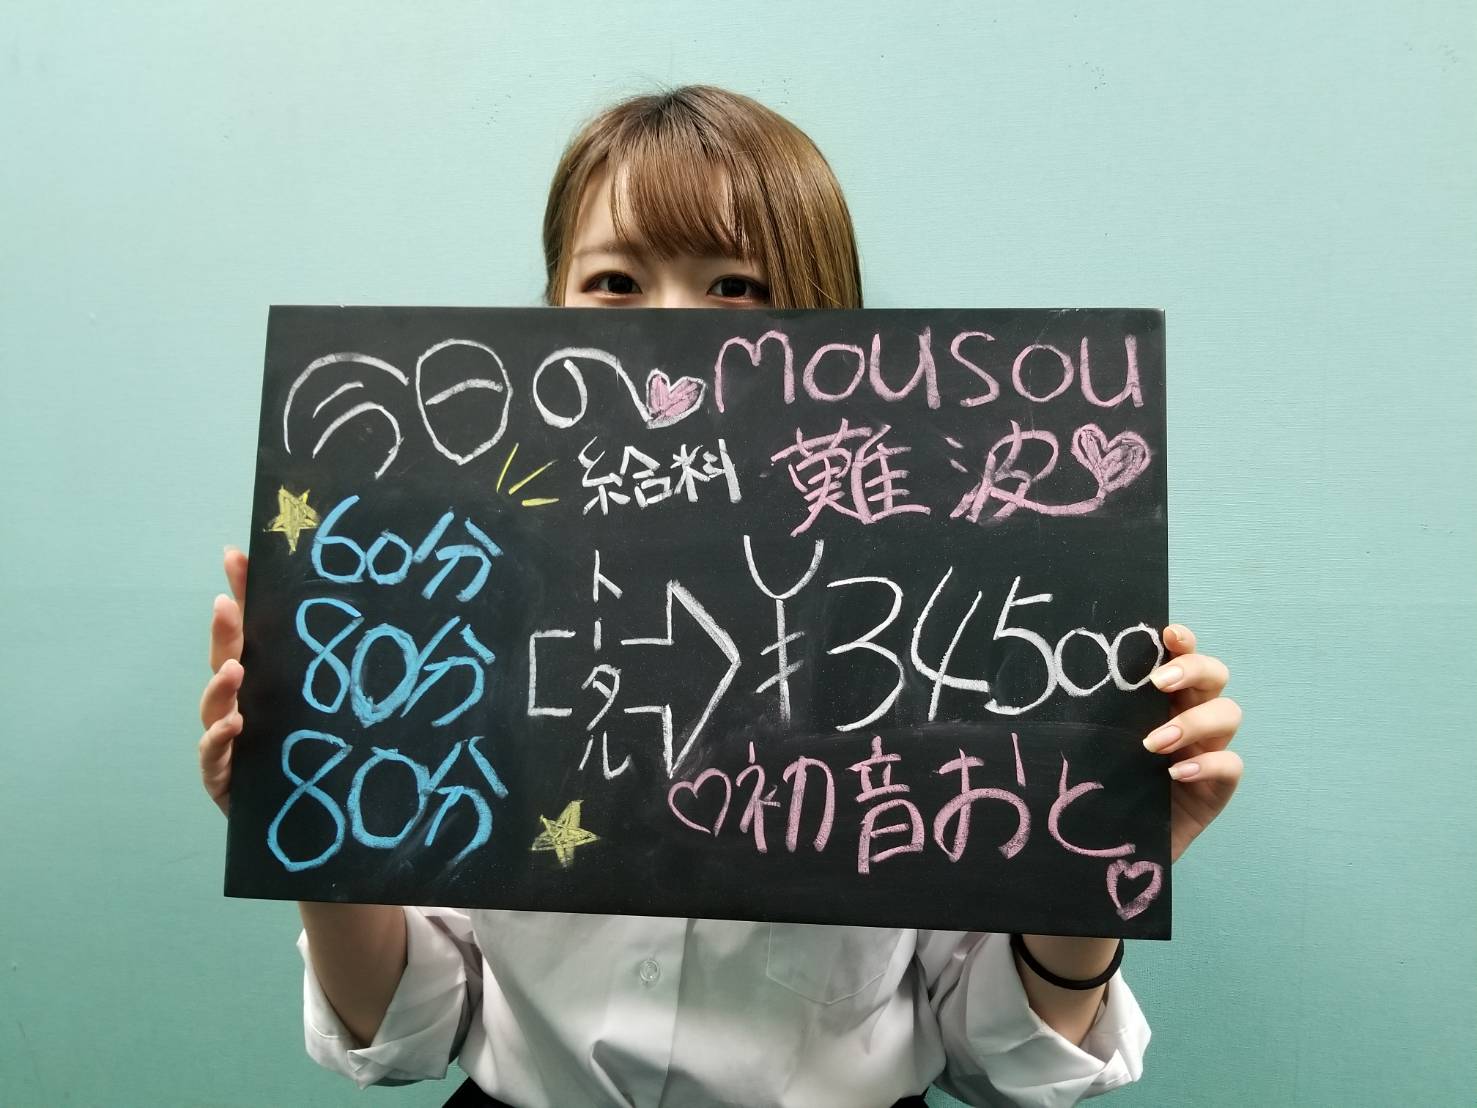 今日の
mousou
給料
難波
60分
80分
80分
トータル
¥34500
初音おと